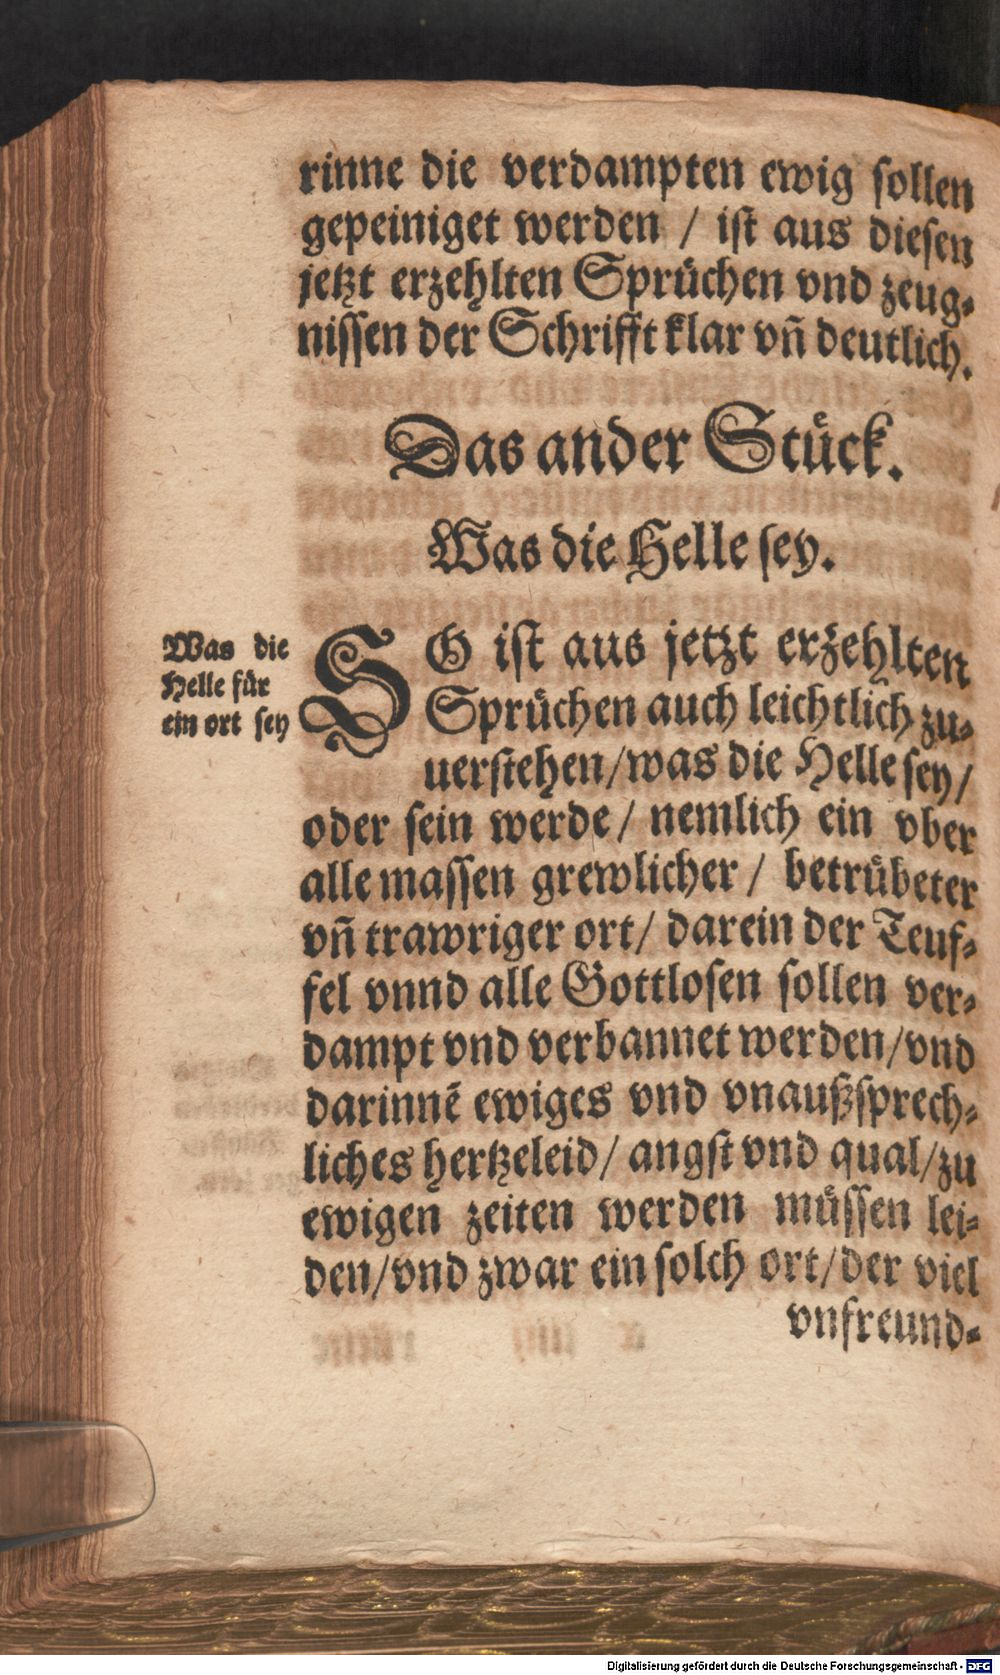 rinne die verdampten ewig sollen
gepeiniget werden / ist aus diesen
jetzt erzehlten Sprüchen vnd zeug⸗
nissen der Schrifft klar vñ deutlich.
Das ander Stück.
Was die Helle sey.
Was die
Helle für
ein ort sey
SO ist aus jetzt erzehlten
Sprüchen auch leichtlich zu⸗
uerstehen/was die Helle sey/
oder sein werde / nemlich ein vber
alle massen grewlicher / betrübeter
vñ trawriger ort/ darein der Teuf⸗
fel vnnd alle Gottlosen sollen ver⸗
dampt vnd verbannet werden/vnd
darinnē ewiges vnd vnaußsprech⸗
liches hertzeleid/ angst vnd qual/zu
ewigen zeiten werden müssen lei⸗
den/vnd zwar ein solch ort/der viel
vnfreund⸗
Digitalisierung gefördert durch die Deutsche Forschungsgemeinschaft - DFG